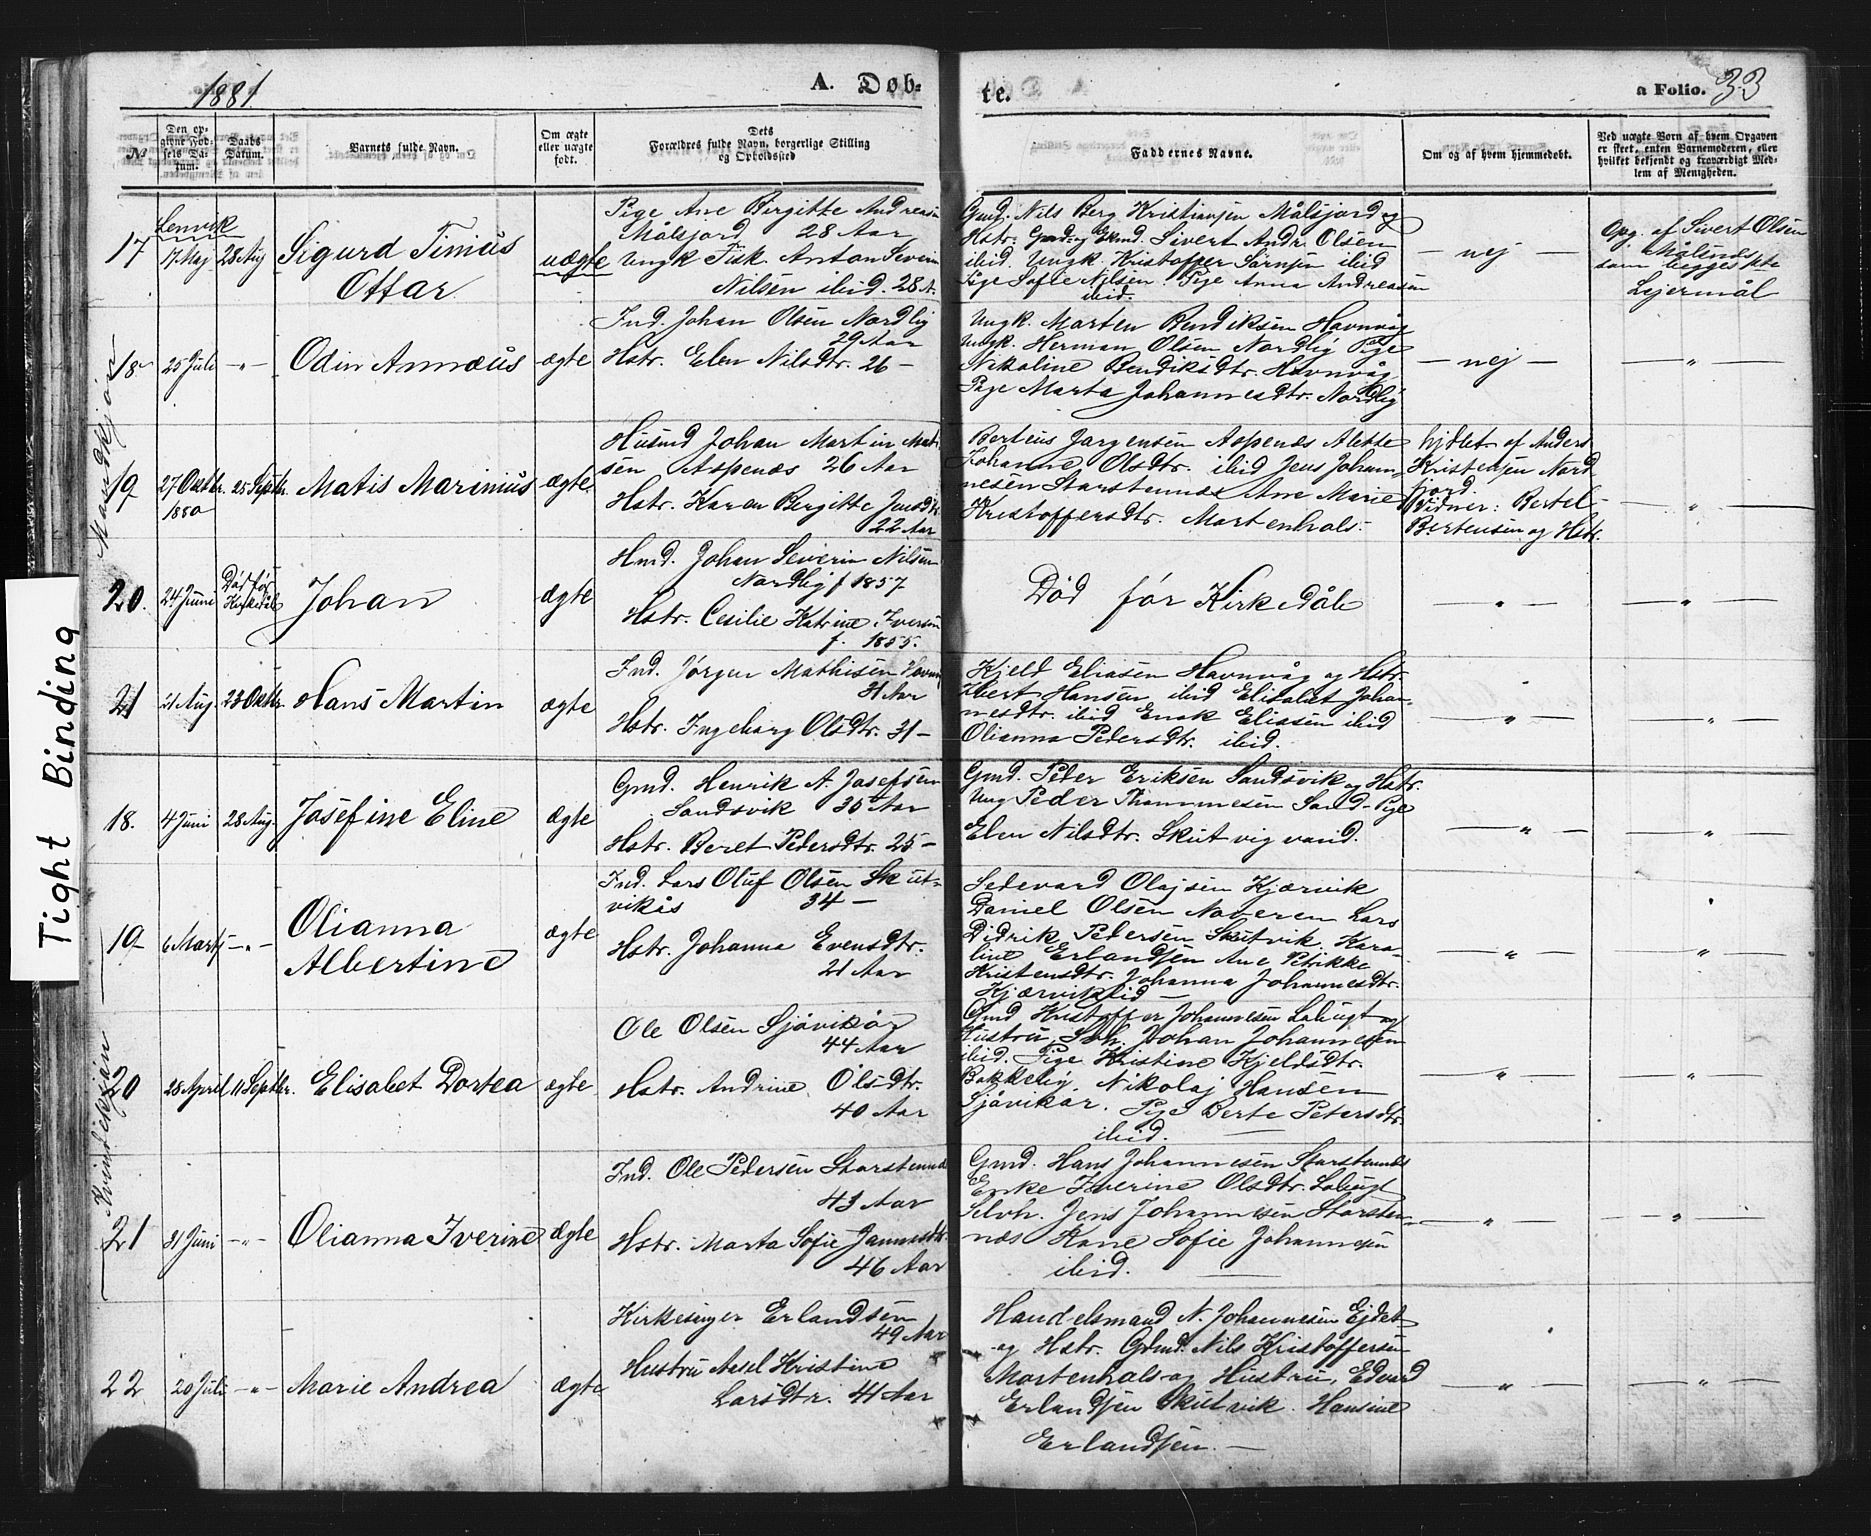 1881
A. Døb-
te.
a Folio. 33
Tight Binding
No
Den op-
givne Fød-
sels Da-
tum.
Daabs
Datum.
Barnets fulde Navn.
Om ægte
eller uægte
født.
Dets
Forældres fulde Navn, borgerlige Stilling
og Opholdssted
Faddernes Navne.
Om og af hvem hjemmedøbt.
Ved uægte Børn af hvem Opgaven
er skeet, enten Barnemoderen, eller
hvilket bekjendt og troværdigt Med-
lem af Menigheden.
Mandkjøn
Lenvik
17 17 Maj 28 Aug Sigurd Timius
Ottar
uægte
Pige Ane Birgitte Andreasen
Målsjord 28 Aar
Ungk Fisk. Anton Severin
Nilsen ibid. 28 A.
Gmd. Nils Berg Kristiansen Målsjord og
Hstr. Gmd. og Sivert Andr. Olsen
ibid. Ungk. Kristoffer Sørnsen ibid
Pige Sofie Nilsen. Pige Anna Andreasen
ibid.
— nej —
Opg. af Sivert Olsen
Målsnes
som begges 1ste
Lejermål
18 25 Juli -"- Odin Annæus ægte
Ind. Johan Olsen Nordlig
29 Aar
Hstr. Elen Nilsdtr. 26 —
Ungk. Morten Bendiksen Havnvåg
Ungk. Herman Olsen Nordlig Pige
Nikoline Bendiksdtr. Havnvåg
Pige Marta Johannesdtr. Nordlig
— nej — — " —
19 27 Oktbr. 1880 25 Septbr. Matis Marinius ægte
Husmd Johan Martin Mat-
sen Aspenæs 26 Aar
Hstr. Karen Birgitte Jensdtr.
22 Aar
Berteus Jørgensen Aspenæs Alette
Johanne Olsdtr. ibid Jens Johan-
nesen Storstennes Ane Marie
Kristoffersdtr. Mortenhals.
hjdbt. af Anders
Kristensen Nord
fjord.
Vidner: Bertel
Bertensen og Hstr.
— " —
20. 24 Juni Død før
Kirkedåb
Johan ægte
Hmd. Johan Severin Nilsen
Nordlig f 1857
Hstr. Cesilie Katrine Iversen
f. 1855.
Død før Kirkedåb
— " — — " —
21 21 Aug. 23 Oktbr. Hans Martin ægte
Ind. Jørgen Mathisen Havnv
31 Aar
Hstr. Ingeborg Olsdtr. 31 —
Kjeld Eliasen Havnvåg og Hstr.
Ibert Hansen ibid Elisabet Johan-
nesdtr. ibid Enok Eliasen ibid
Olianna Pedersdtr. ibid.
— " — — " —
Kvindekjøn
18. 4 Juni 28 Aug. Josefine Eline ægte
Gmd. Henrik A. Josefsen
Sandsvik 35 Aar
Hstr. Beret Pedersdtr. 25 —
Gmd. Peder Eriksen Sandsvik og Hstr.
Ung Peder Thommesen Sand- Pige
Elen Nilsdtr. Skutvig vand.
— " — — " —
19 6 Marts -"- Olianna
Albertine
ægte
Ind. Lars Oluf Olsen Skut-
vikås 34 —
Hstr. Johanna Evensdtr.
21 Aar
Sedevard Olajsen Kjærvik
Daniel Olsen Naveren Lars
Didrik Pedersen Skutvik. Karo-
line Erlandsen Ane Petrikke
Kristensdtr. Johanna Johannesdtr.
Kjærvik ibid —
— " — — " —
20 28 April 11 Septbr. Elisabet Dortea ægte
Ole Olsen Sjåvikår
44 Aar
Hstr. Andrine Olsdtr.
40 Aar
Gmd Kristoffer Johannesen Labugt og
Hustru, Selvh. Johan Johannesen
ibid. Pige Kristine Kjeldsdtr.
Bakkelig. Nikolaj Hansen
Sjåvikår. Pige Berte Petersdtr.
ibid.
— " — — " —
21 21 Juni -"- Olianna Iverine ægte
Ind. Ole Pedersen Storstennes
43 Aar
Hstr. Marta Sofie Jannesdtr.
46 Aar
Gmd. Hans Johannesen Storstennes
Enke Iverine Olsdtr. Labugt
Selvh. Jens Johannesen Storsten-
næs Hane Sofie Johannesen
ibid.
— " — — " —
22 20 Juli -"- Marie Andrea ægte
Kirkesanger Erlandsen
49 Aar
Hustru Aasel Kristine
Larsdtr. 41 Aar
Handelsmand N. Johannesen Ejdet
og Hstr. Gmd. Nils Kristoffersen
Mortenhals og Hustru, Edvard
Erlandsen Skutvik. Hansine
Erlandsen. —
— " — — " —